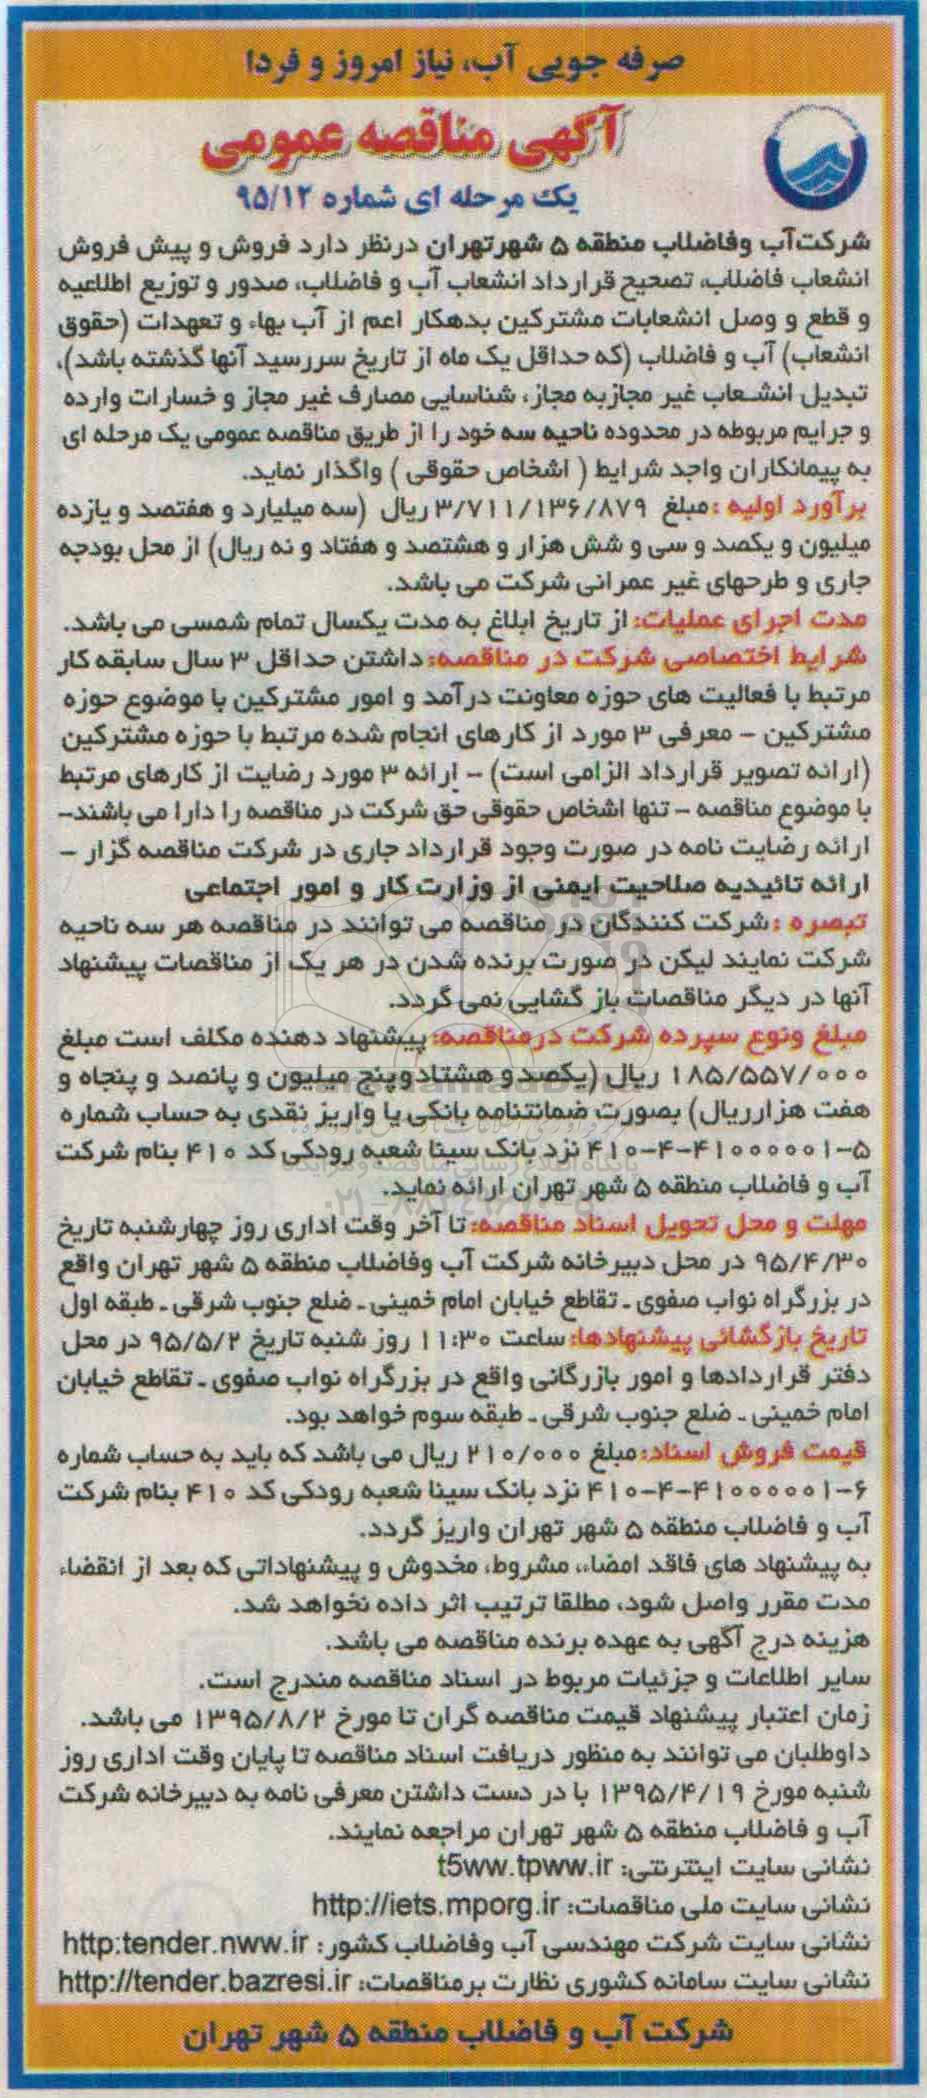 صرفه جویی آب، نیاز امروز و فردا
آگهی مناقصه عمومی
یک مرحله ای شماره ۹۵/۱۲
شرکت آب وفاضلاب منطقه ۵ شهرتهران درنظر دارد فروش و پیش فروش
انشعاب فاضلاب، تصحیح قرارداد انشعاب آب و فاضلاب، صدور و توزیع اطلاعیه
و قطع و وصل انشعابات مشترکین بدهکار اعم از آب بهاء و تعهدات (حقوق
انشعاب) آب و فاضلاب (که حداقل یک ماه از تاریخ سررسید آنها گذشته باشد)،
تبدیل انشعاب غیر مجازبه مجاز، شناسایی مصارف غیر مجاز و خسارات وارده
و جرایم مربوطه در محدوده ناحیه سه خود را از طریق مناقصه عمومی یک مرحله ای
به پیمانکاران واجد شرایط ( اشخاص حقوقی ) واگذار نماید.
برآورد اولیه : مبلغ ۳/۷۱۱/۱۳۶/۸۷۹ ریال (سه میلیارد و هفتصد و یازده
میلیون و یکصد و سی و شش هزار و هشتصد و هفتاد و نه ریال) از محل بودجه
جاری و طرحهای غیر عمرانی شرکت می باشد.
مدت اجرای عملیات: از تاریخ ابلاغ به مدت یکسال تمام شمسی می باشد.
شرایط اختصاصی شرکت در مناقصه: داشتن حداقل ۳ سال سابقه کار
مرتبط با فعالیت های حوزه معاونت درآمد و امور مشترکین با موضوع حوزه
مشترکین – معرفی ۳ مورد از کارهای انجام شده مرتبط با حوزه مشترکین
(ارائه تصویر قرارداد الزامی است) – ارائه ۳ مورد رضایت از کارهای مرتبط
با موضوع مناقصه – تنها اشخاص حقوقی حق شرکت در مناقصه را دارا می باشند–
ارائه رضایت نامه در صورت وجود قرارداد جاری در شرکت مناقصه گزار –
ارائه تائیدیه صلاحیت ایمنی از وزارت کار و امور اجتماعی
تبصره : شرکت کنندگان در مناقصه می توانند در مناقصه هر سه ناحیه
شرکت نمایند لیکن در صورت برنده شدن در هر یک از مناقصات پیشنهاد
آنها در دیگر مناقصات باز گشایی نمی گردد.
مبلغ ونوع سپرده شرکت درمناقصه: پیشنهاد دهنده مکلف است مبلغ
۱۸۵/۵۵۷/۰۰۰ ریال (یکصد و هشتادوپنج میلیون و پانصد و پنجاه و
هفت هزارریال) بصورت ضمانتنامه بانکی یا واریز نقدی به حساب شماره
۴۱۰-۴-۴۱۰۰۰۰۰۱-۵ نزد بانک سینا شعبه رودکی کد ۴۱۰ بنام شرکت
آب و فاضلاب منطقه ۵ شهر تهران ارائه نماید.
مهلت و محل تحویل اسناد مناقصه: تا آخر وقت اداری روز چهارشنبه تاریخ
۹۵/۴/۳۰ در محل دبیرخانه شرکت آب وفاضلاب منطقه ۵ شهر تهران واقع
در بزرگراه نواب صفوی ـ تقاطع خیابان امام خمینی ـ ضلع جنوب شرقی ـ طبقه اول
تاریخ بازگشائی پیشنهادها: ساعت ۱۱:۳۰ روز شنبه تاریخ ۹۵/۵/۲ در محل
دفتر قراردادها و امور بازرگانی واقع در بزرگراه نواب صفوی ـ تقاطع خیابان
امام خمینی ـ ضلع جنوب شرقی ـ طبقه سوم خواهد بود.
قیمت فروش اسناد: مبلغ ۲۱۰/۰۰۰ ریال می باشد که باید به حساب شماره
۴۱۰-۴-۴۱۰۰۰۰۰۱-۶ نزد بانک سینا شعبه رودکی کد ۴۱۰ بنام شرکت
آب و فاضلاب منطقه ۵ شهر تهران واریز گردد.
به پیشنهاد های فاقد امضاء، مشروط، مخدوش و پیشنهاداتی که بعد از انقضاء
مدت مقرر واصل شود، مطلقا ترتیب اثر داده نخواهد شد.
هزینه درج آگهی به عهده برنده مناقصه می باشد.
سایر اطلاعات و جزئیات مربوط در اسناد مناقصه مندرج است.
زمان اعتبار پیشنهاد قیمت مناقصه گران تا مورخ ۱۳۹۵/۸/۲ می باشد.
داوطلبان می توانند به منظور دریافت اسناد مناقصه تا پایان وقت اداری روز
شنبه مورخ ۱۳۹۵/۴/۱۹ با در دست داشتن معرفی نامه به دبیرخانه شرکت
آب و فاضلاب منطقه ۵ شهر تهران مراجعه نمایند.
نشانی سایت اینترنتی: t5ww.tpww.ir
نشانی سایت ملی مناقصات: http://iets.mporg.ir
نشانی سایت شرکت مهندسی آب وفاضلاب کشور: http:tender.nww.ir
نشانی سایت سامانه کشوری نظارت برمناقصات: http://tender.bazresi.ir
شرکت آب و فاضلاب منطقه ۵ شهر تهران